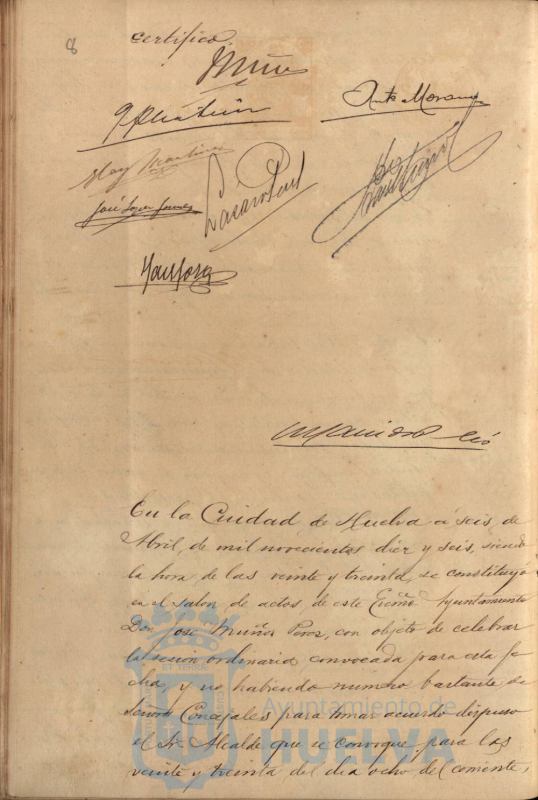 8
certifico
Muñoz
Antº Moreno
José López Gómez
En la Ciudad de Huelva á seis de
Abril de mil novecientos diez y seis, siendo
la hora de las veinte y treinta, se constituyó
en el salon de actos de este Excmo Ayuntamiento
Don José Muñoz Perez, con objeto de celebrar
la sesion ordinaria convocada para esta fe
cha, y no habiendo numero bastante de
Señores Concejales para tomar acuerdo dispuso
el Sr. Alcalde que se convoque para las
veinte y treinta del dia ocho del corriente,
Ayuntamiento de
HUELVA